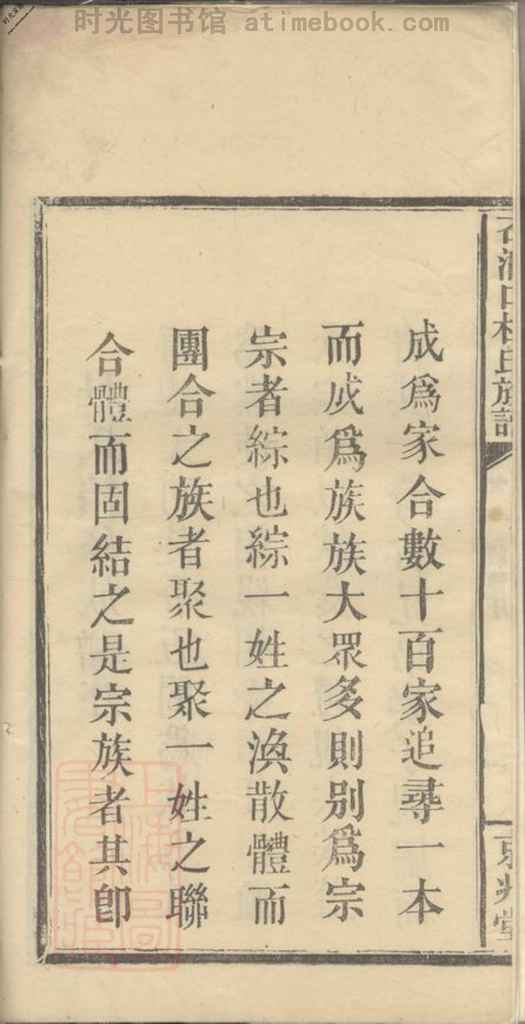 时光图书馆 atimebook.com
成爲家合數十百家追尋一本
而成爲族族大眾多則別爲宗
宗者綜也綜一姓之渙散體而
團合之族者聚也聚一姓之聯
合體而固結之是宗族者其卽